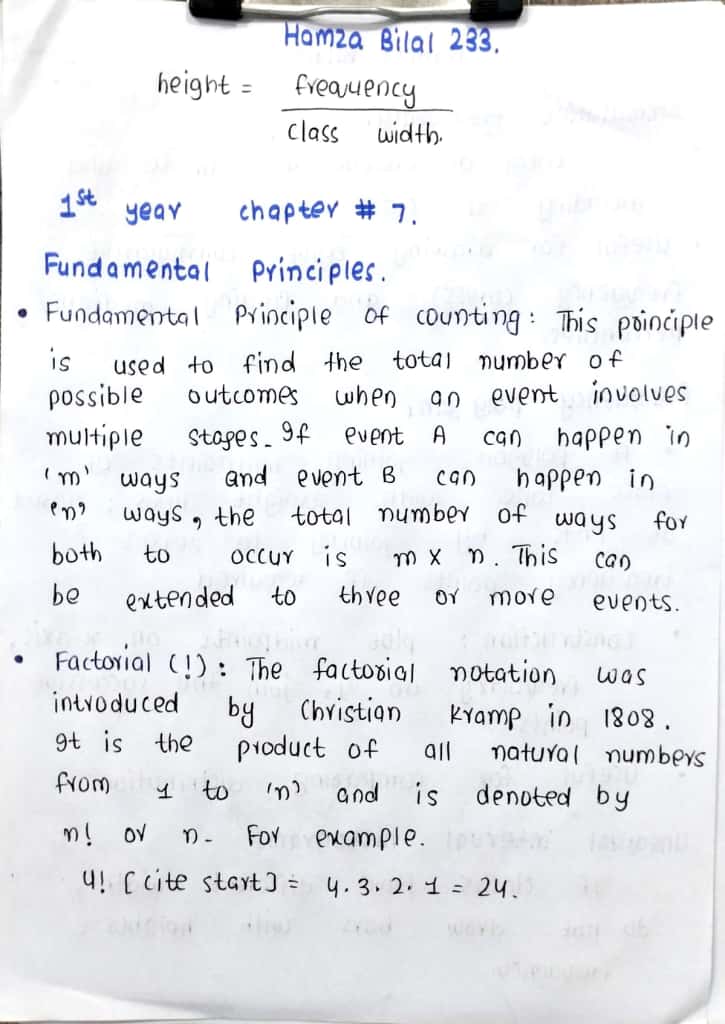 Hamza Bilal 233.
height = frequency
class width.
1st year chapter # 7.
Fundamental Principles.
• Fundamental Principle of counting: This poinciple
is used to find the total number of
possible outcomes when an event involves
multiple stages. If event A can happen in
'm' ways and event B can happen in
'n' ways, the total number of ways for
both to occur is m x n. This can
be extended to three or more events.
• Factorial (!): The factorial notation was
introduced by Christian Kramp in 1808.
It is the product of all natural numbers
from 1 to 'n' and is denoted by
n! or n. For example.
4! [cite start] = 4.3.2.1 = 24.